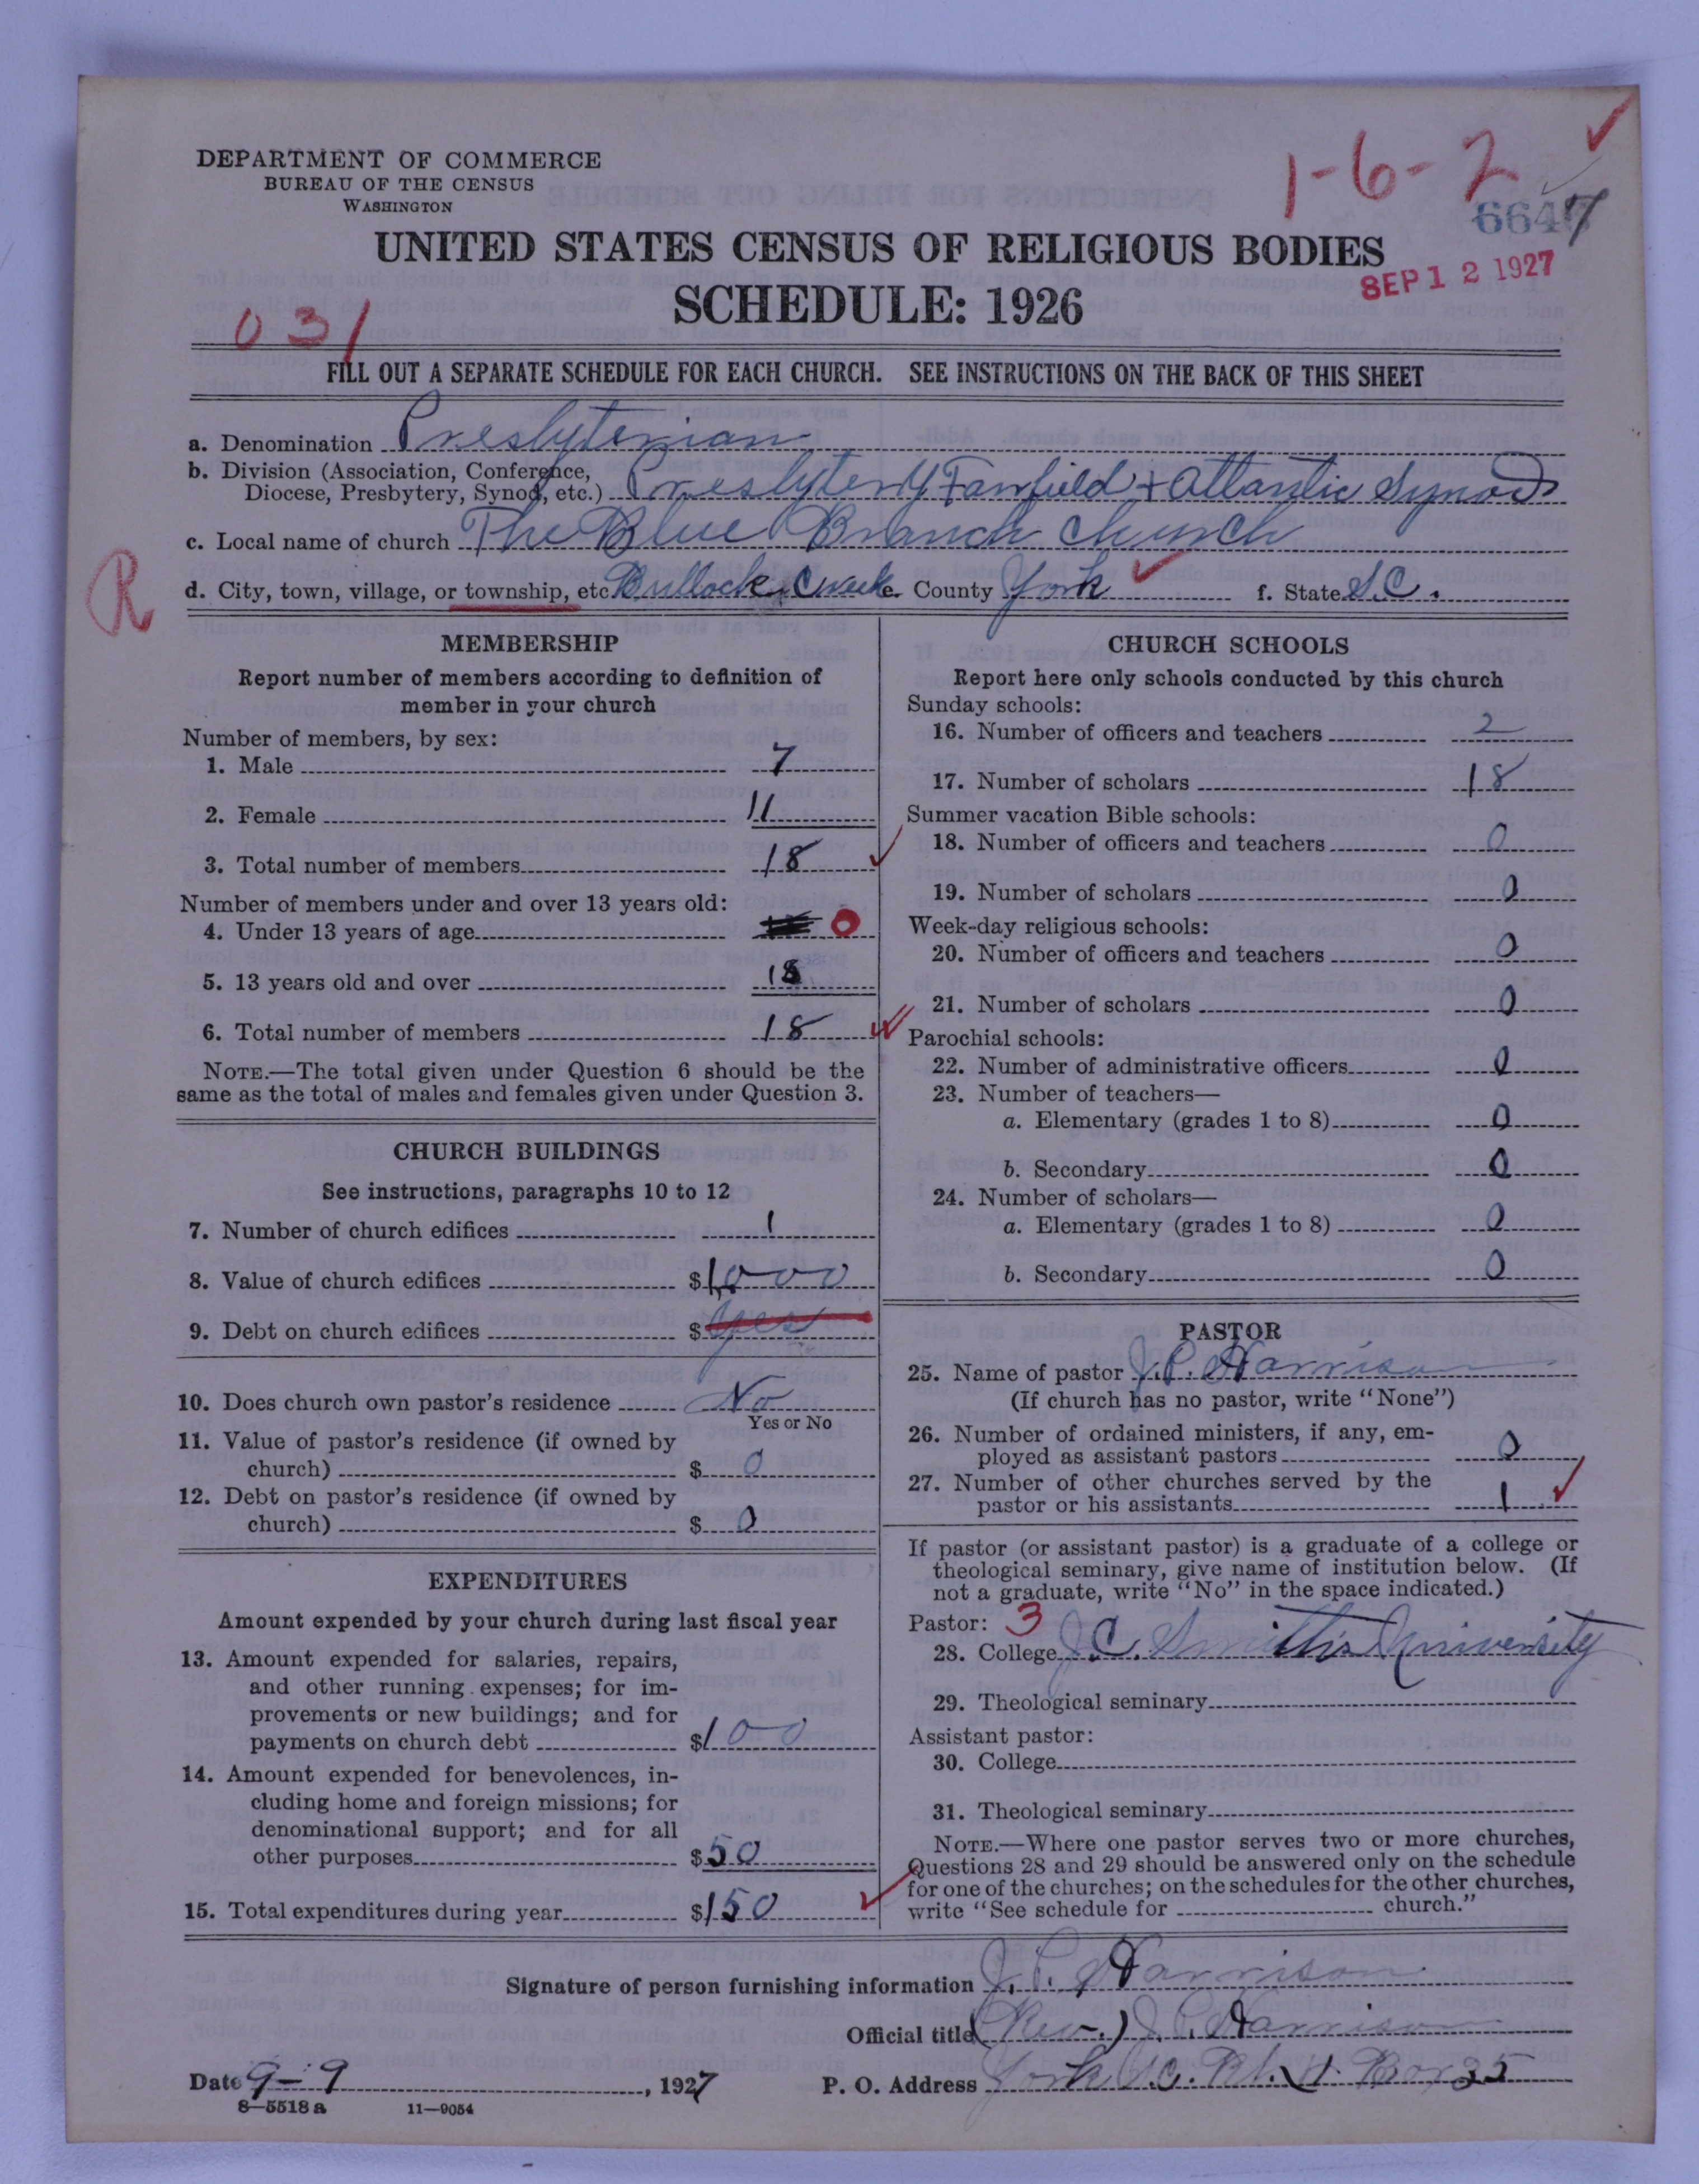 DEPARTMENT OF COMMERCE
BUREAU OF THE CENSUS
WASHINGTON
1-6-2
6647
UNITED STATES CENSUS OF RELIGIOUS BODIES
SEP 12 1927
SCHEDULE: 1926
031
FILL OUT A SEPARATE SCHEDULE FOR EACH CHURCH. SEE INSTRUCTIONS ON THE BACK OF THIS SHEET
a. Denomination Presbyterian
b. Division (Association, Conference,
Diocese, Presbytery, Synod, etc.) Presbytery Fairfield + Atlantic Synod
c. Local name of church The Blue Branch Church
R
d. City, town, village, or township, etc. Bullock Creek e. County York f. State S.C.
MEMBERSHIP
Report number of members according to definition of
member in your church
Number of members, by sex:
1. Male 7
2. Female 11
3. Total number of members 18
Number of members under and over 13 years old:
4. Under 13 years of age 0
5. 13 years old and over 18
6. Total number of members 18
NOTE.—The total given under Question 6 should be the
same as the total of males and females given under Question 3.
CHURCH BUILDINGS
See instructions, paragraphs 10 to 12
7. Number of church edifices 1
8. Value of church edifices $1000
9. Debt on church edifices $ yes
10. Does church own pastor's residence No
Yes or No
11. Value of pastor's residence (if owned by
church) $ 0
12. Debt on pastor's residence (if owned by
church) $ 0
EXPENDITURES
Amount expended by your church during last fiscal year
13. Amount expended for salaries, repairs,
and other running expenses; for im-
provements or new buildings; and for
payments on church debt $100
14. Amount expended for benevolences, in-
cluding home and foreign missions; for
denominational support; and for all
other purposes $50
15. Total expenditures during year $150
CHURCH SCHOOLS
Report here only schools conducted by this church
Sunday schools:
16. Number of officers and teachers 2
17. Number of scholars 18
Summer vacation Bible schools:
18. Number of officers and teachers 0
19. Number of scholars 0
Week-day religious schools:
20. Number of officers and teachers 0
21. Number of scholars 0
Parochial schools:
22. Number of administrative officers 0
23. Number of teachers—
a. Elementary (grades 1 to 8) 0
b. Secondary 0
24. Number of scholars—
a. Elementary (grades 1 to 8) 0
b. Secondary 0
PASTOR
25. Name of pastor J.P. Harrison
(If church has no pastor, write "None")
26. Number of ordained ministers, if any, em-
ployed as assistant pastors 0
27. Number of other churches served by the
pastor or his assistants 1
If pastor (or assistant pastor) is a graduate of a college or
theological seminary, give name of institution below. (If
not a graduate, write "No" in the space indicated.)
Pastor: 3
28. College J.C. Smith's University
29. Theological seminary
Assistant pastor:
30. College
31. Theological seminary
NOTE.—Where one pastor serves two or more churches,
Questions 28 and 29 should be answered only on the schedule
for one of the churches; on the schedules for the other churches,
write "See schedule for church."
Signature of person furnishing information J.P. Harrison
Official title (Rev.) J.P. Harrison
Date 9-9, 1927 P. O. Address York S.C. Rt. 4. Box 35
8—5518 a 11—9054